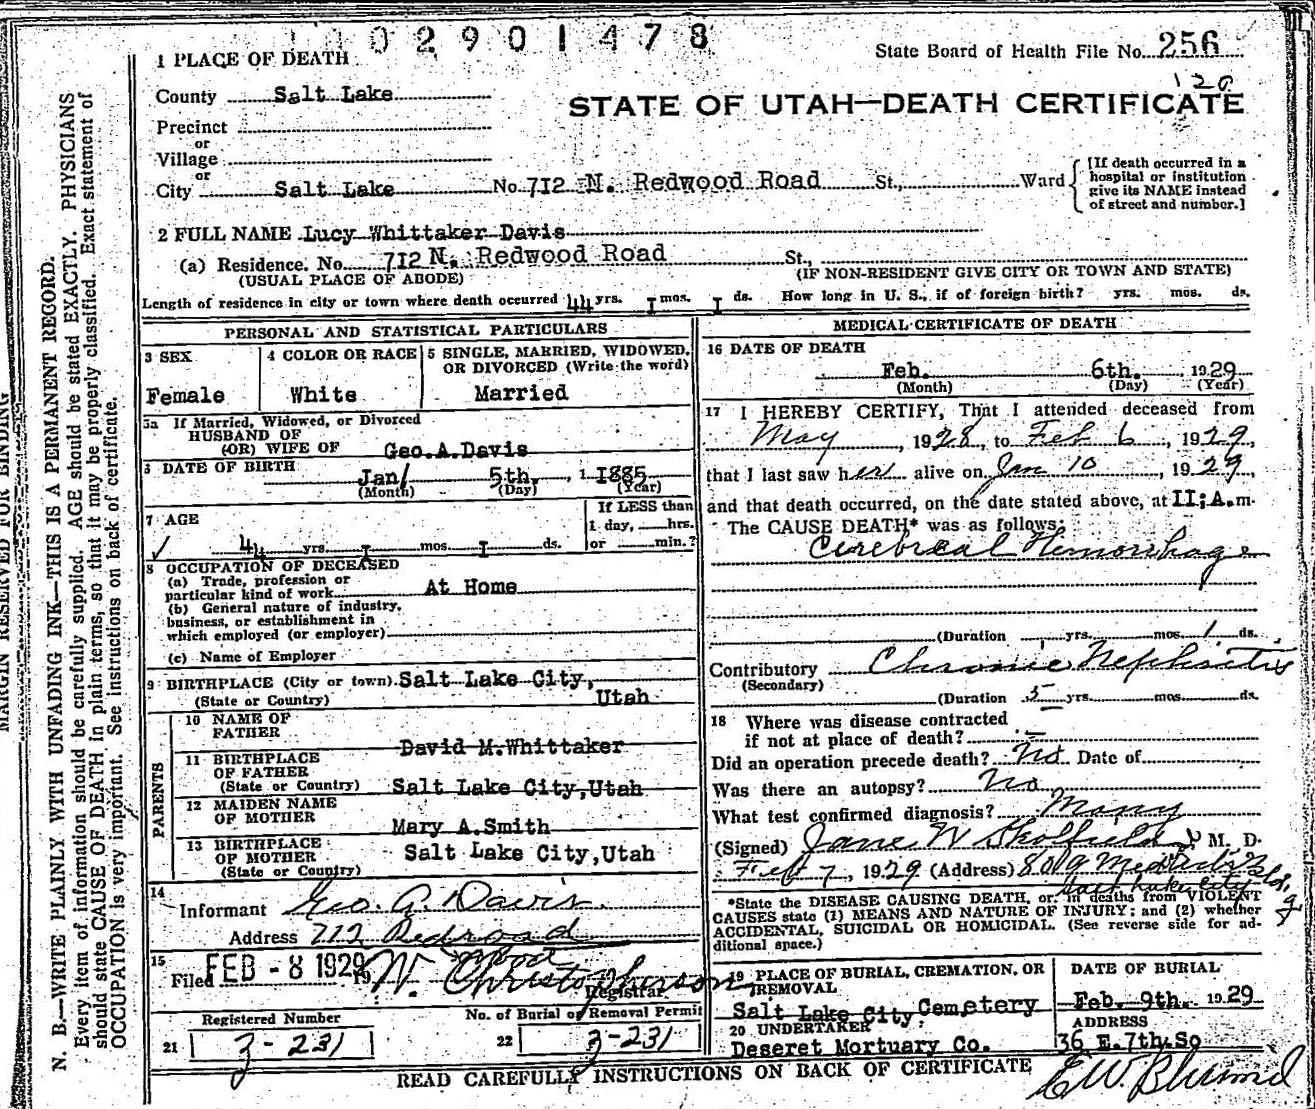 1 0 2 9 0 1 4 7 8
State Board of Health File No. 256
120
1 PLACE OF DEATH
STATE OF UTAH—DEATH CERTIFICATE
County Salt Lake
Precinct
or
Village
or
City Salt Lake No. 712 N. Redwood Road St., Ward
[If death occurred in a hospital or institution give its NAME instead of street and number.]
2 FULL NAME Lucy Whittaker Davis
(a) Residence. No. 712 N. Redwood Road St.,
(USUAL PLACE OF ABODE) (IF NON-RESIDENT GIVE CITY OR TOWN AND STATE)
Length of residence in city or town where death occurred 44 yrs. I mos. I ds. How long in U. S., if of foreign birth? yrs. mos. ds.
PERSONAL AND STATISTICAL PARTICULARS
3 SEX
Female
4 COLOR OR RACE
White
5 SINGLE, MARRIED, WIDOWED,
OR DIVORCED (Write the word)
Married
5a If Married, Widowed, or Divorced
HUSBAND OF
(OR) WIFE OF Geo.A.Davis
6 DATE OF BIRTH
Jan/ 5th. 1 1885
(Month) (Day) (Year)
7 AGE
44 yrs. I mos. I ds.
If LESS than
1 day, hrs.
or min.?
8 OCCUPATION OF DECEASED
(a) Trade, profession or
particular kind of work At Home
(b) General nature of industry,
business, or establishment in
which employed (or employer)
(c) Name of Employer
9 BIRTHPLACE (City or town) Salt Lake City,
(State or Country) Utah
PARENTS
10 NAME OF
FATHER David M.Whittaker
11 BIRTHPLACE
OF FATHER
(State or Country) Salt Lake City,Utah
12 MAIDEN NAME
OF MOTHER Mary A.Smith
13 BIRTHPLACE
OF MOTHER Salt Lake City,Utah
(State or Country)
14
Informant Geo. A. Davis
Address 712 Redwood
15
Filed FEB - 8 1929 19 W. Christopherson
Registrar
Registered Number
21 3-231
No. of Burial or Removal Permit
22 3-231
MEDICAL CERTIFICATE OF DEATH
16 DATE OF DEATH
Feb. 6th. , 1929
(Month) (Day) (Year)
17 I HEREBY CERTIFY, That I attended deceased from
May , 1928, to Feb 6 , 1929,
that I last saw her alive on Jan 10 , 1929,
and that death occurred, on the date stated above, at II;A.m.
The CAUSE DEATH* was as follows:
Cerebral Hemorrhage
(Duration yrs. mos. 1 ds.
Contributory Chronic Nephritis
(Secondary)
(Duration 5 yrs. mos. ds.
18 Where was disease contracted
if not at place of death? -
Did an operation precede death? No Date of
Was there an autopsy? No
What test confirmed diagnosis? Many
(Signed) Jane W Skolfield, M. D.
Feb 7, 1929 (Address) 809 Medical Arts Bldg
Salt Lake City
*State the DISEASE CAUSING DEATH, or, in deaths from VIOLENT
CAUSES state (1) MEANS AND NATURE OF INJURY; and (2) whether
ACCIDENTAL, SUICIDAL OR HOMICIDAL. (See reverse side for ad-
ditional space.)
19 PLACE OF BURIAL, CREMATION, OR
REMOVAL
Salt Lake City Cemetery
DATE OF BURIAL
Feb. 9th. 1929
20 UNDERTAKER
Deseret Mortuary Co.
ADDRESS
36 E.7th.So
READ CAREFULLY INSTRUCTIONS ON BACK OF CERTIFICATE
MARGIN RESERVED FOR BINDING
N. B.—WRITE PLAINLY WITH UNFADING INK—THIS IS A PERMANENT RECORD.
Every item of information should be carefully supplied. AGE should be stated EXACTLY. PHYSICIANS
should state CAUSE OF DEATH in plain terms, so that it may be properly classified. Exact statement of
OCCUPATION is very important. See instructions on back of certificate.